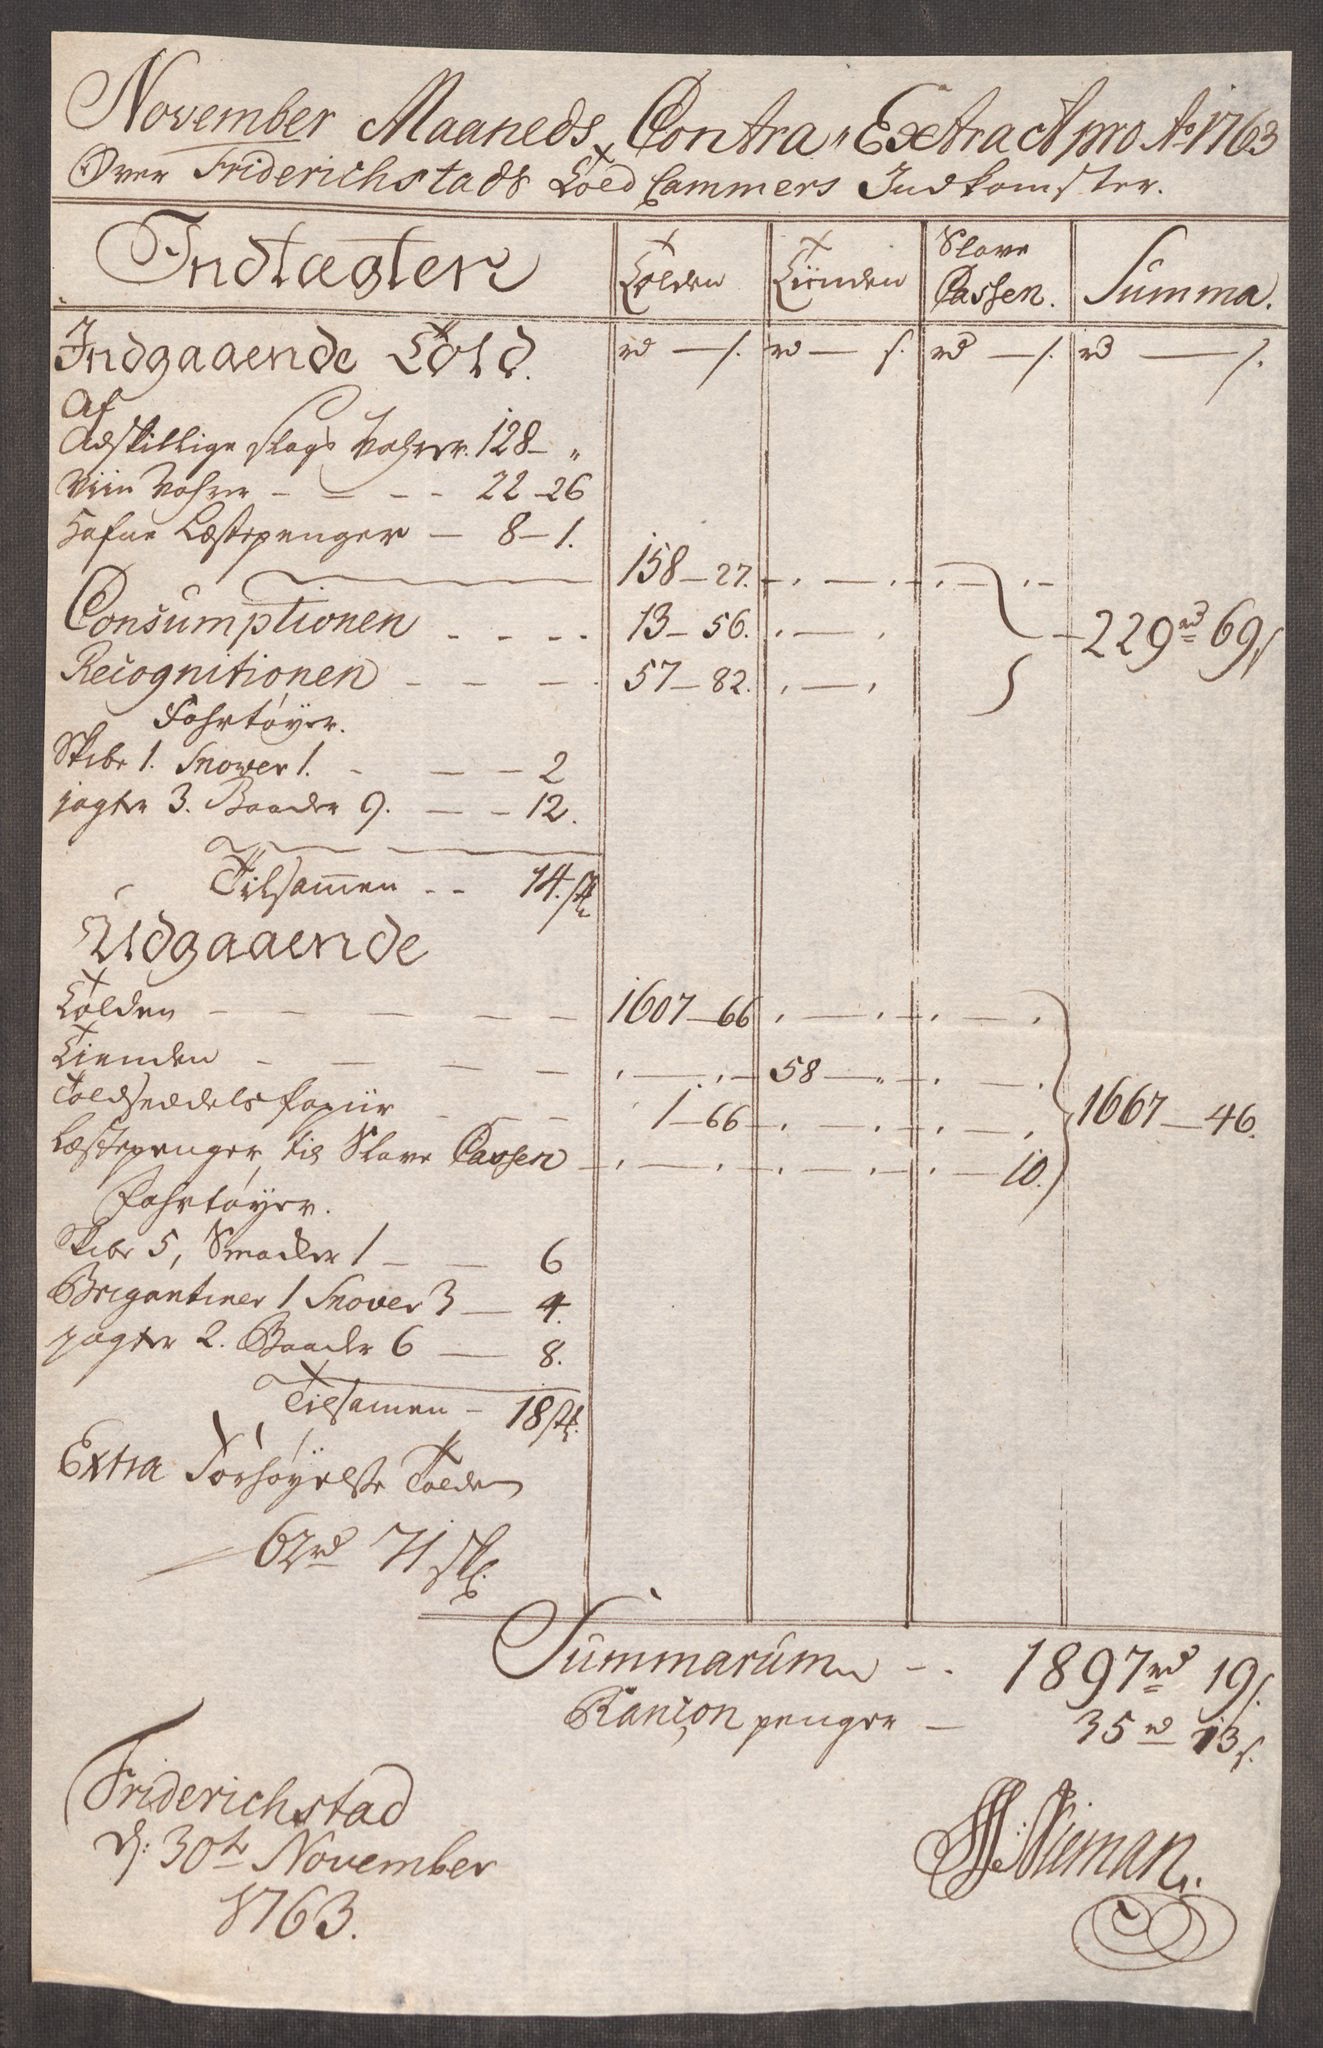 November Maaneds Contra Extract pro Ao 1763
Over Friderichstads Told Cammers Indkomster.
Indtægter Tolden Tiinden Slave Cassen. Summa.
Indgaaende Told. rd — s. rd — s. rd — s. rd — s.
Af
Adskillige slags Vahrer. 128 — "
Viin Vahrer — — — 22 — 26
Hafne Læstepenger — 8 — 1.
158 — 27.
Consumptionen - - - - 13 — 56. 229 rd 69 s
Recognitionen - - - 57 — 82.
Fahrtøyer.
Skibe 1. Snower 1. - — — 2
jagter 3. Baader 9. — — 12.
Tilsam̄en - - 14. stk
Udgaaende
Tolden — — — — — 1607 — 66
Tienden — — — — 58 — "
Toldseddels Papiir — — — 1 — 66 1667 — 46.
Læstepenger til Slave Cassen — 10.
Fahrtøyer.
Skibe 5, Smacker 1 — — 6
Brigantiner 1 Snover 3 — 4.
jagter 2. Baader 6 — 8.
Tilsamen — 18 stk.
Extra Forhøyelse Tolden
62 rd 71 sk.
Summarum - - 1897 rd 19 s.
Rançon penger — 35 rd 13 s.
Friderichstad
d: 30te November
1763.
Nieman